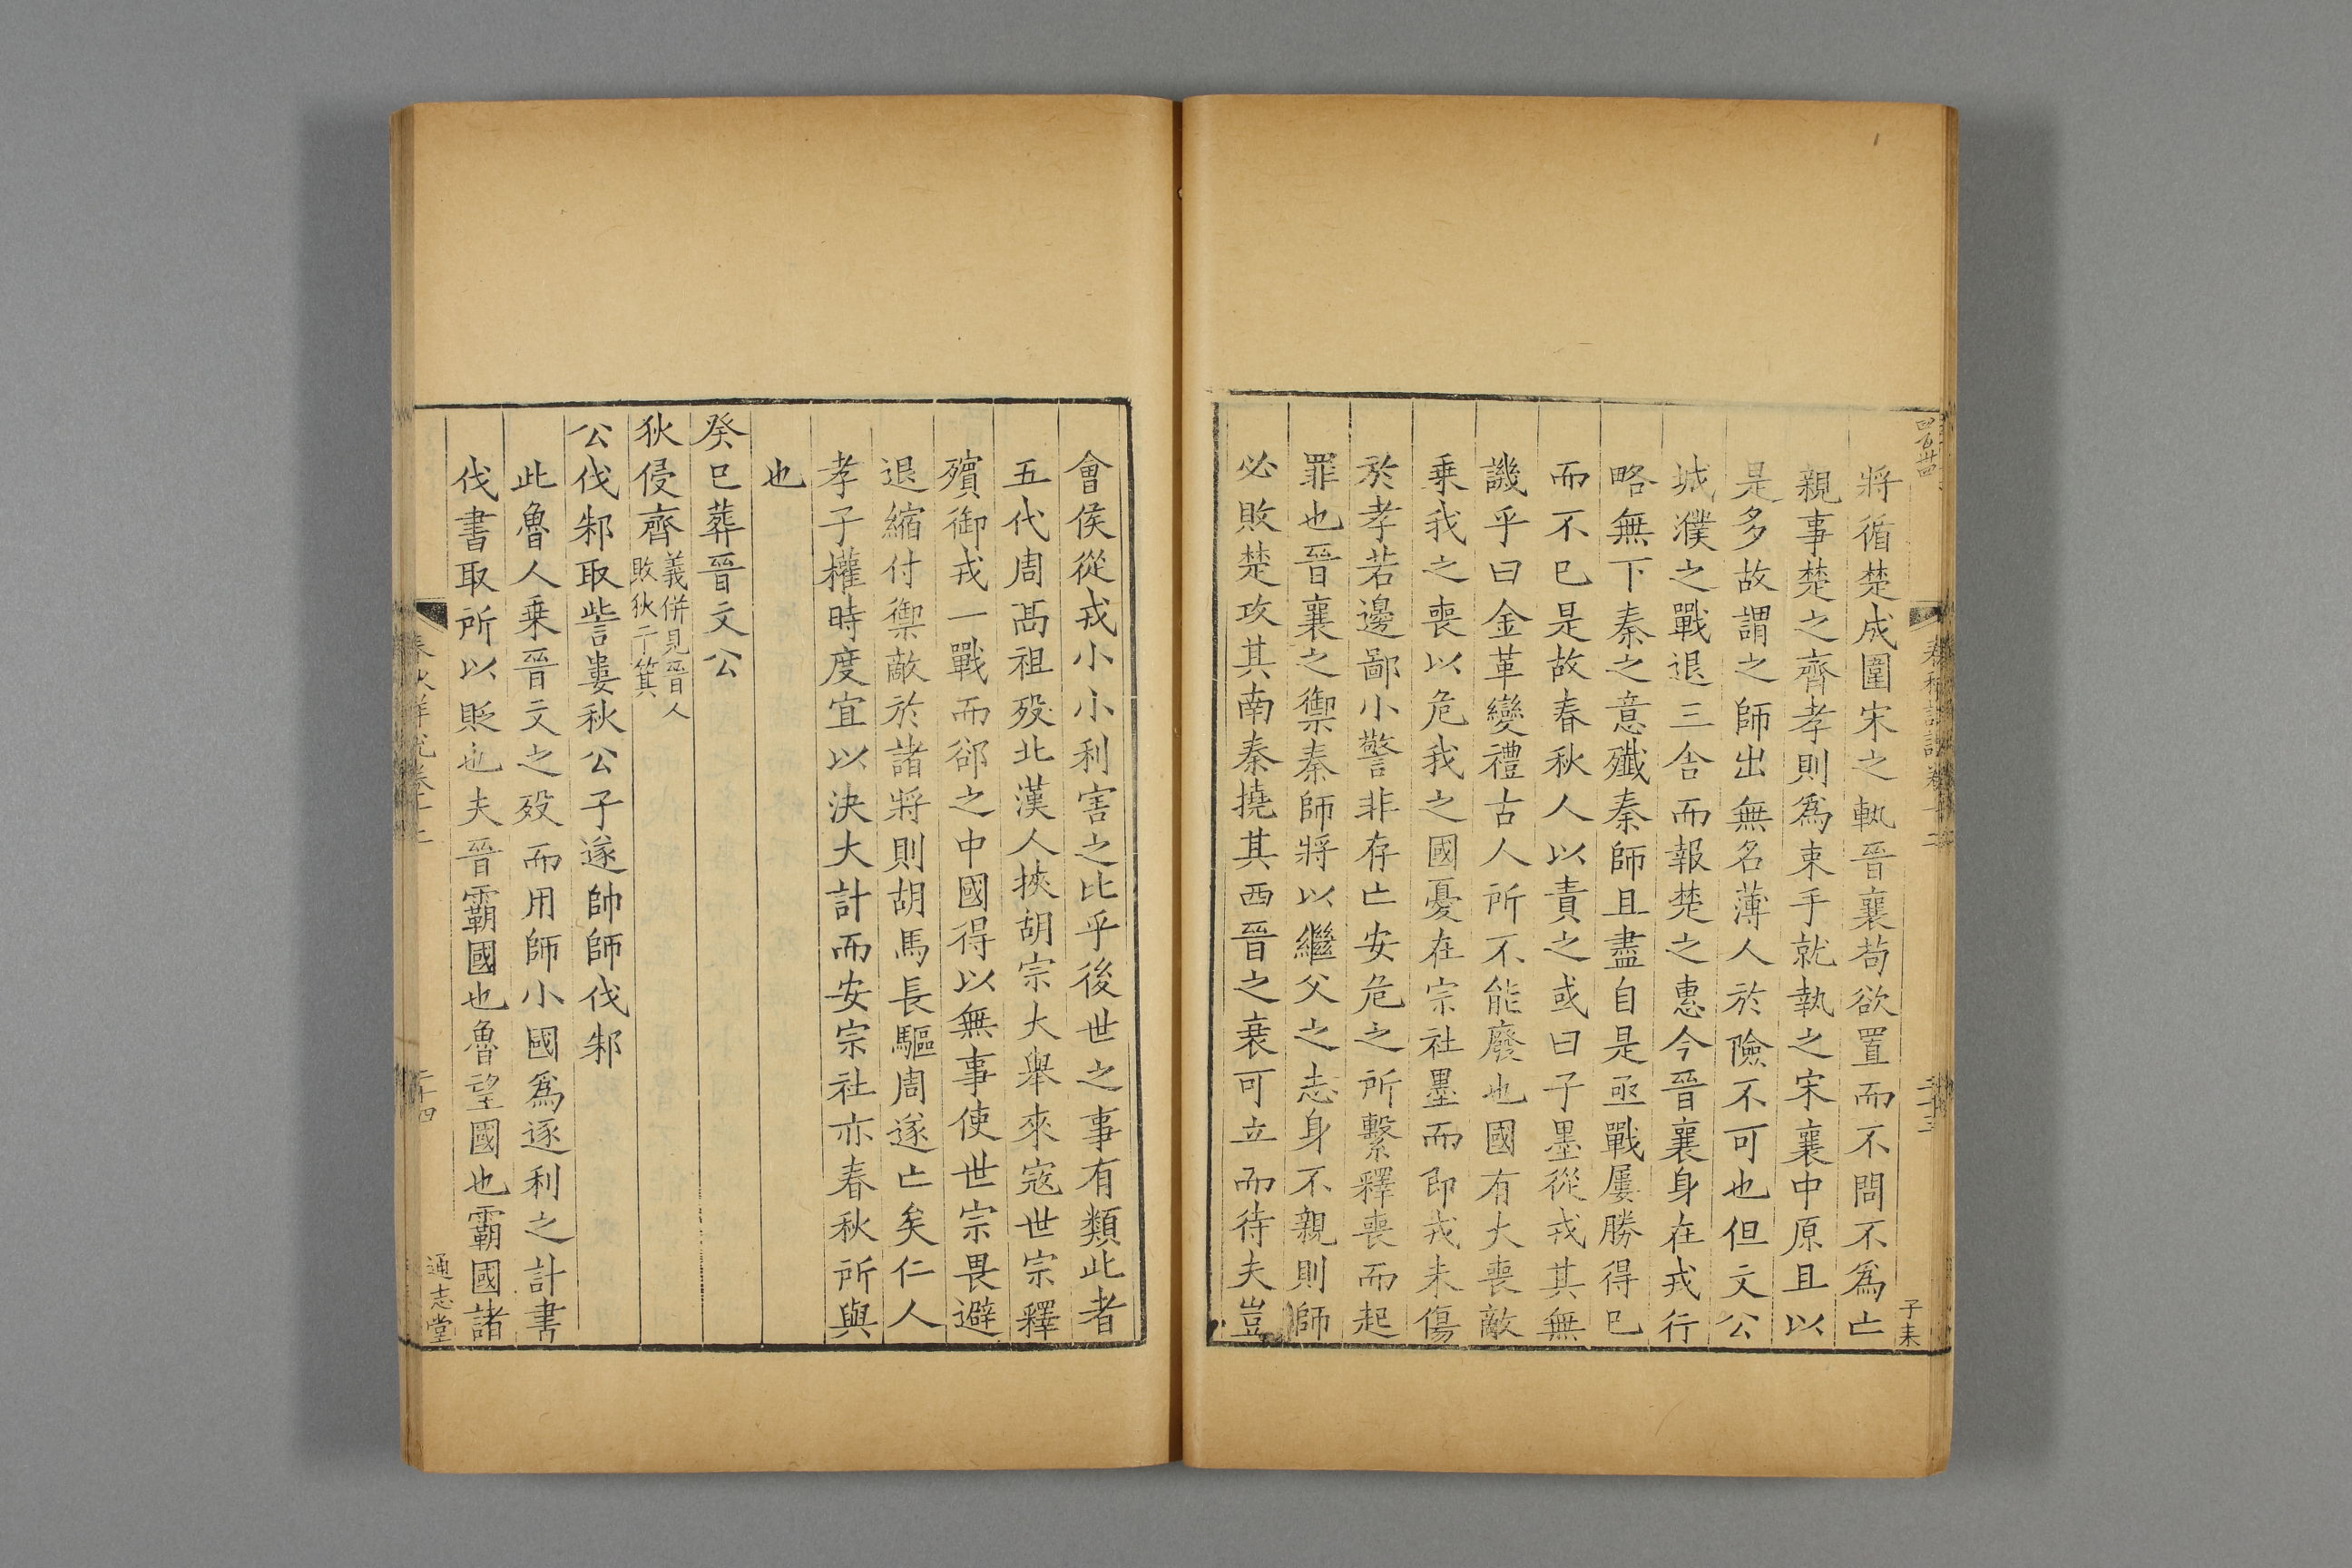 將循楚成圍宋之軌晉襄苟欲置而不問不爲亡
親事楚之齊孝則爲束手就執之宋襄中原且以
是多故謂之師出無名薄人於險不可也但文公
城濮之戰退三舍而報楚之惠今晉襄身在戎行
略無下秦之意殲秦師且盡自是亟戰屢勝得巳
而不巳是故春秋人以責之或曰子墨從戎其無
譏乎曰金革變禮古人所不能廢也國有大喪敵
乗我之喪以危我之國憂在宗社墨而即戎未傷
於孝若邊鄙小警非存亡安危之所繫釋喪而起
罪也晉襄之禦秦師將以繼父之志身不親則師
必敗楚攻其南秦撓其西晉之衰可立而待夫豈
子耒
會侯從戎小小利害之比乎後世之事有類此者
五代周高祖歿北漢人挾胡宗大舉來寇世宗釋
殯御戎一戰而郤之中國得以無事使世宗畏避
退縮付禦敵於諸將則胡馬長驅周遂亡矣仁人
孝子權時度宜以決大計而安宗社亦春秋所與
也
癸巳葬晉文公
狄侵齊義併見晉人敗狄于箕
公伐邾取訾婁秋公子遂帥師伐邾
此魯人乗晉文之歿而用師小國爲逐利之計書
伐書取所以貶也夫晉霸國也魯望國也霸國諸
春秋詳說卷十二
二十四
通志堂